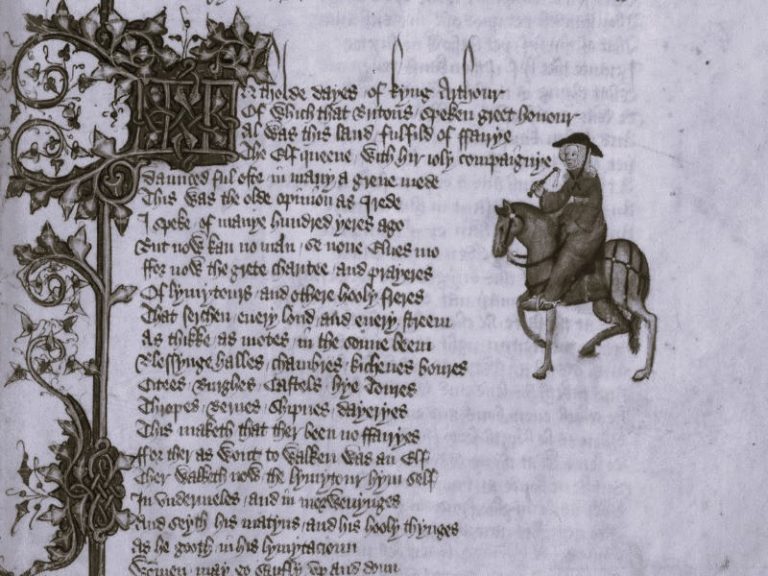 In tholde dayes of kyng Arthour
Of which that Britons speken greet honour
Al was this land fulfild of ffairye
The Elf queene with hir ioly compaignye
Daunced ful ofte in many a grene mede
This was the olde opinion as I rede
I speke of manye hundred yeres ago
But now kan no man se none Elues mo
ffor now the grete charitee and prayeres
Of lymytours and othere hooly freres
That serchen euery lond and euery streem
As thikke as motes in the sonne beem
Blessynge halles chambres kichenes boures
Citees Burghes Castels hye Toures
Thropes Bernes Shipnes dayeryes
This maketh that ther been no ffairyes
ffor ther as wont to walken was an Elf
Ther walketh now the lymytour hym self
In vndermeles and in morwenynges
And seyth his matyns and his hooly thynges
As he gooth in his lymytacioun
Wommen may go saufly vp and doun